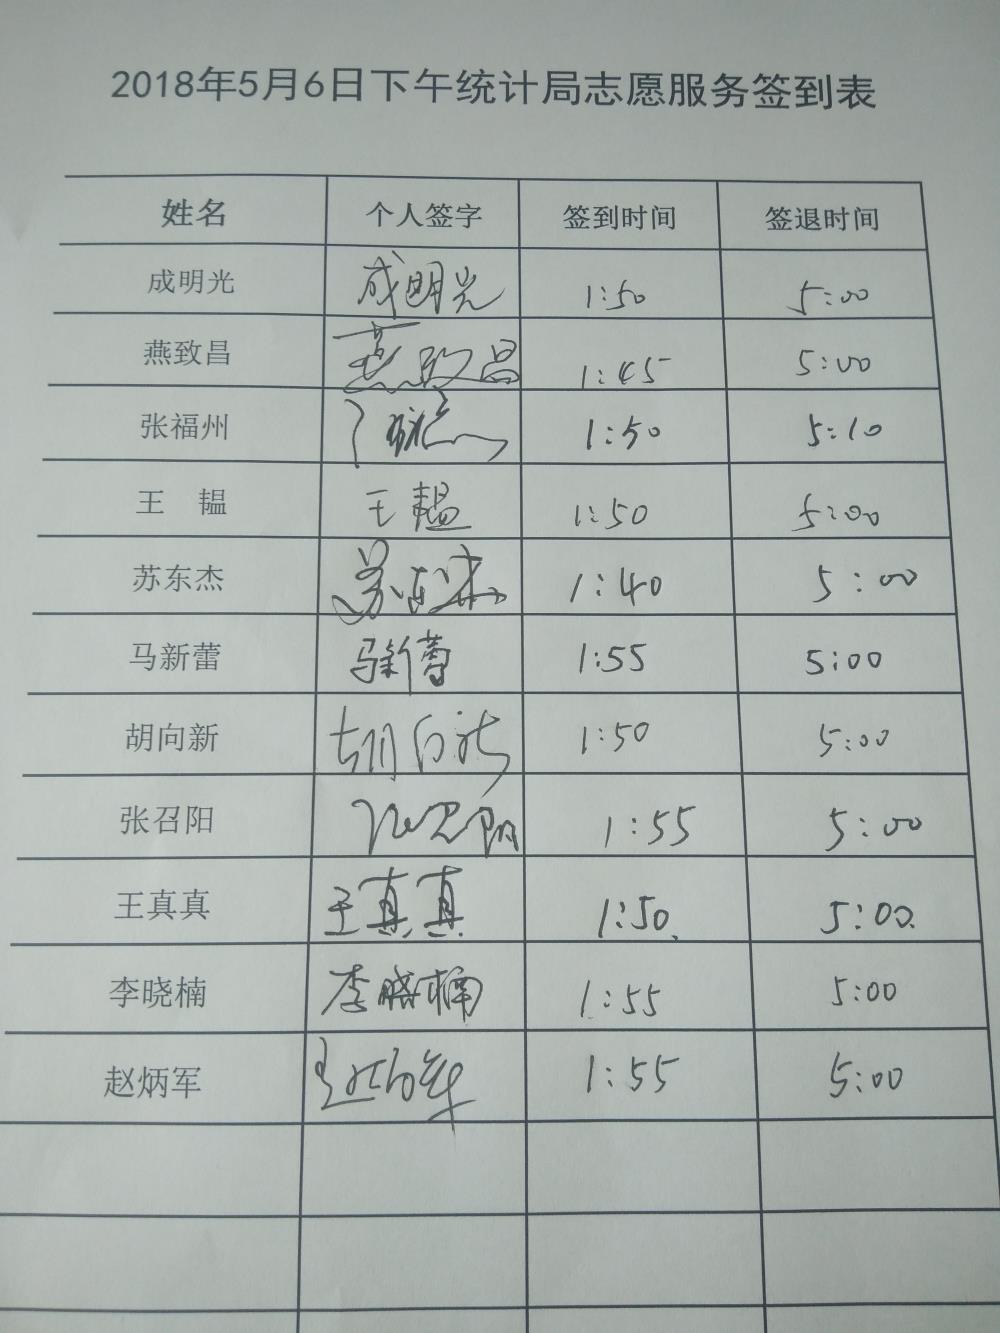 2018年5月6日下午统计局志愿服务签到表
姓名 个人签字 签到时间 签退时间
成明光 成明光 1:50 5:00
燕致昌 燕致昌 1:45 5:00
张福州 1:50 5:10
王 韫 王韫 1:50 5:00
苏东杰 苏东杰 1:40 5:00
马新蕾 马新蕾 1:55 5:00
胡向新 胡向新 1:50 5:00
张召阳 张召阳 1:55 5:00
王真真 王真真 1:50 5:00
李晓楠 李晓楠 1:55 5:00
赵炳军 赵炳军 1:55 5:00